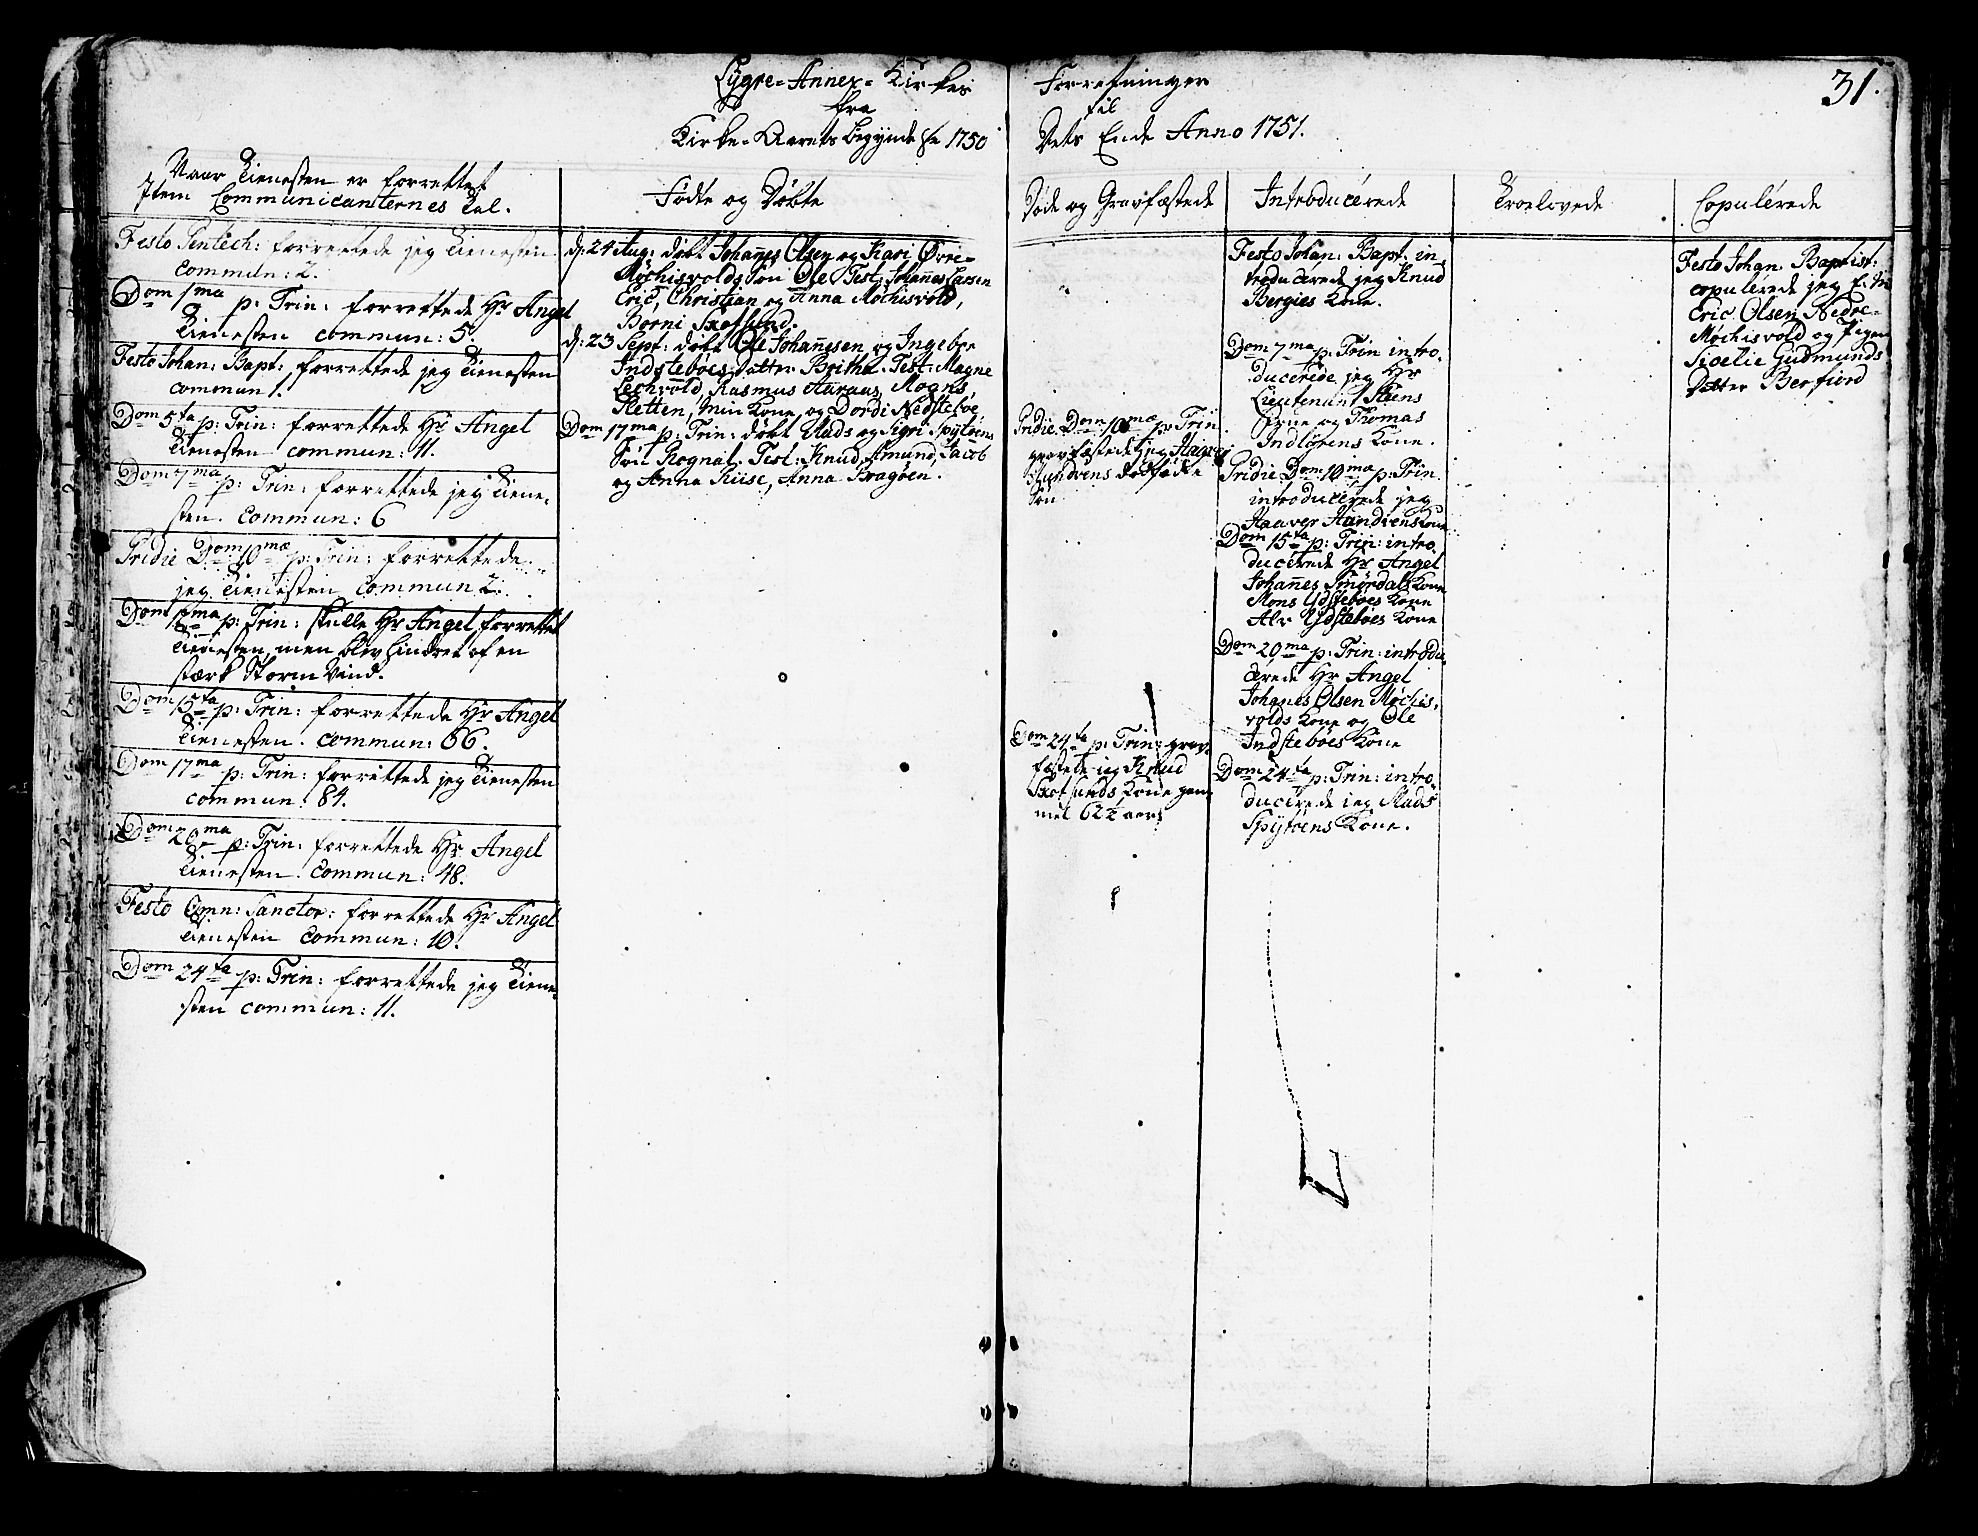 31.
Lygre-Annex-Kirkes Forretninger
fra til
Kirke-Aarets begyndelse 1750 Dets Ende Anno 1751.
Naar Tienesten er forrettet
Item Communicanternes Tal.
Festo Pentech: forrettede jeg Tienesten
commun: 2.
Dom 1ma p: Trin: forrettede Hr Angel
Tienesten commun: 5.
Festo Johan: Bapt: forrettede jeg Tienesten
commun 1.
Dom 5ta p: Trin: forrettede Hr Angel
Tienesten commun: 11.
Dom 7ma p: Trin: forrettede jeg Tiene-
sten. commun: 6
Pridie Dom 10mæ p: Trin: forrettede
jeg Tienesten commun 2.
Dom p: Trin: skulle Hr Angel forrettet
Tienesten, men blev hindret af en
stærk Storm Vind.
Dom 15ta p: Trin: forrettede Hr Angel
Tienesten. commun: 66.
Dom 17ma p: Trin: forrettede jeg Tienesten
commun: 84.
Dom 20ma p: Trin: forrettede Hr Angel
Tienesten. Commun: 48.
Festo Omn: Sanctor: forrettede Hr Angel
Tienesten Commun: 10.
Dom 24ta p: Trin: forrettede jeg Tiene-
sten commun: 11.
Fødte og Døbte
d: 24 Aug: døbt Johan̄es Olsen og Kari Øvre-
Møchisvolds Søn Ole Test: Johan̄es Larsen
Eric, Christian og Anna Møchisvold,
Børni Skotsund.
d: 23 Sept: døbt Ole Johan̄esen og Ingebor
Indstebøes Datter Britha. Test: Magne
Lechvold, Rasmus Auraas, Mogns
Sletten, min Kone, og Dordi Nedstebøe.
Dom 17ma p: Trin: døbt Mads og Sigri Spytøens
Søn Rognal. Test: Knud, Amund, Jacob
og Anna Riise, Anna Bragøen.
Døde og Gravfæstede
Pridie Dom 10mæ p: Trin.
gravfæstede jeg Haaver
Hundvens dødfødte
Søn
Dom 24ta p: Trin: grav-
fæstede jeg Knud
Skotsunds Kone gam-
mel 62½ aar
Introducérede
Festo Johan: Bapt: in-
troducérede jeg Knud
Bergies Kone.
Dom 7ma p: Trin intro-
ducérede jeg Hr
Lieutenant Steens
Frue og Thomas
Indlørens Kone.
Pridie Dom 10ma p: Trin.
introducérede jeg
Haaver Hundvens Kone
Dom 15ta p: Trin: intro-
ducérede Hr Angel
Johan̄es Smørdals Kone
Mons Ydstebøes Kone
Alv Ydstebøes Kone
Dom 20ma p: Trin: introdu-
cérede Hr Angel
Johan̄es Olsen Møchis-
volds Kone og Ole
Indstebøes Kone
Dom 24ta p: Trin: intro-
ducérede jeg Mads
Spytøens Kone.
Troelovede
Copulérede
Festo Johan. Baptist:
copulérede jeg
Eric Olsen Nedre-
Møchisvold og Pigen
Sidelie Gudmunds
Datter Berfiord